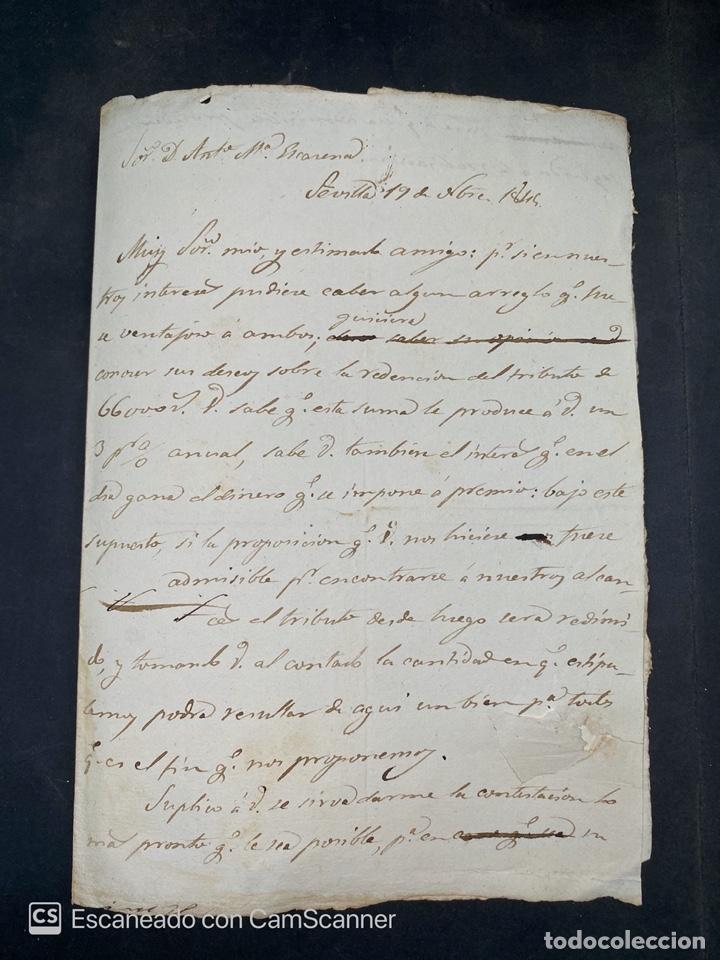 Sor. D. Anto. Ma. Escacena
Sevilla 19 de Nbre. 184
Muy Sor. mio, y estimado amigo: pr. si en nues-
tros intereses pudiere caber algun arreglo qe. fue-
e ventajoso á ambos; quisiera saber su opinion
conocer sus deseos sobre la redencion del tributo de
66000 r. V. sabe qe. esta suma le produce á V. un
3 pr. % anual, sabe V. tambien el interes qe. en el
dia gana el dinero qe. se impone á premio: bajo este
supuesto, si la proposicion qe. V. nos hiciere fuere
admisible pr. encontrarse á nuestros alcan-
ces el tributo desde luego sera redimi-
do, y tomando V. al contado la cantidad en qe. estipu-
lemos podrá resultar de aqui un bien pa. todos
qe. es el fin qe. nos proponemos.
Suplico á V. se sirva darme la contestacion lo
mas pronto qe. le sea posible, pa. en su
CS Escaneado con CamScanner
todocoleccion